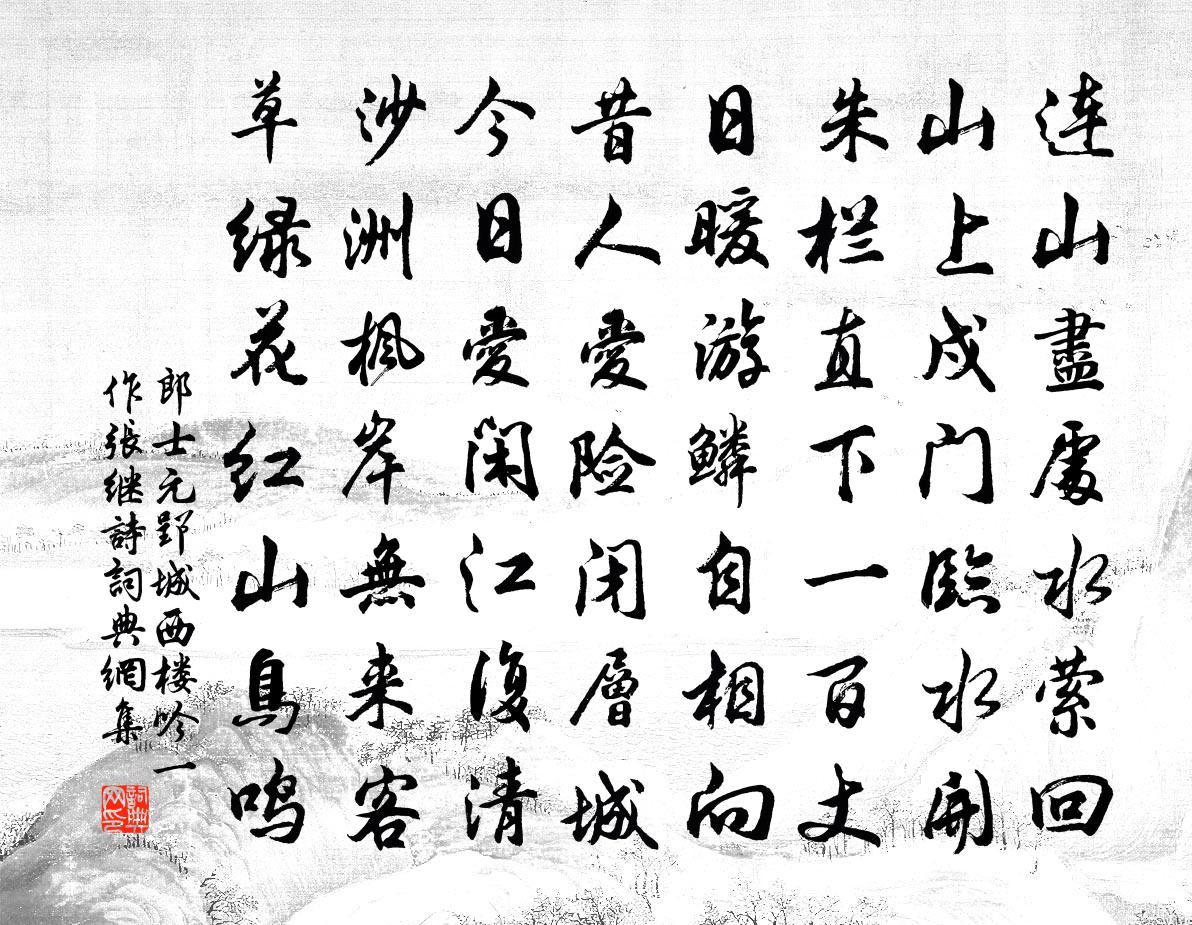 连山盡處水萦回
山上戍门臨水開
朱栏直下一百丈
日暖游鳞自相向
昔人愛险闭層城
今日愛闲江復清
沙洲枫岸無来客
草绿花红山鳥鸣
郎士元郢城西楼吟一
作张继詩詞典網集
詞典网印